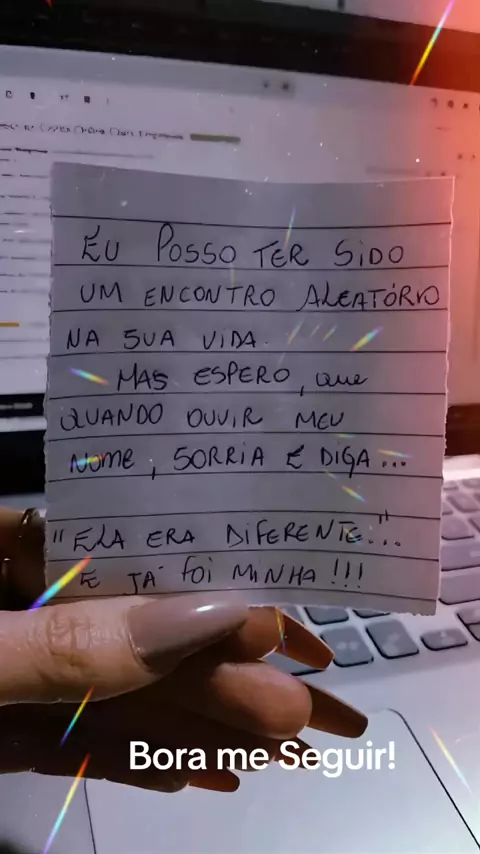 EU POSSO TER SIDO
UM ENCONTRO ALEATÓRIO
NA SUA VIDA.
MAS ESPERO, que
QUANDO OUVIR MEU
NOME, SORRIA E DIGA...
"ELA ERA DIFERENTE"...
E JÁ FOI MINHA!!!
Bora me Seguir!